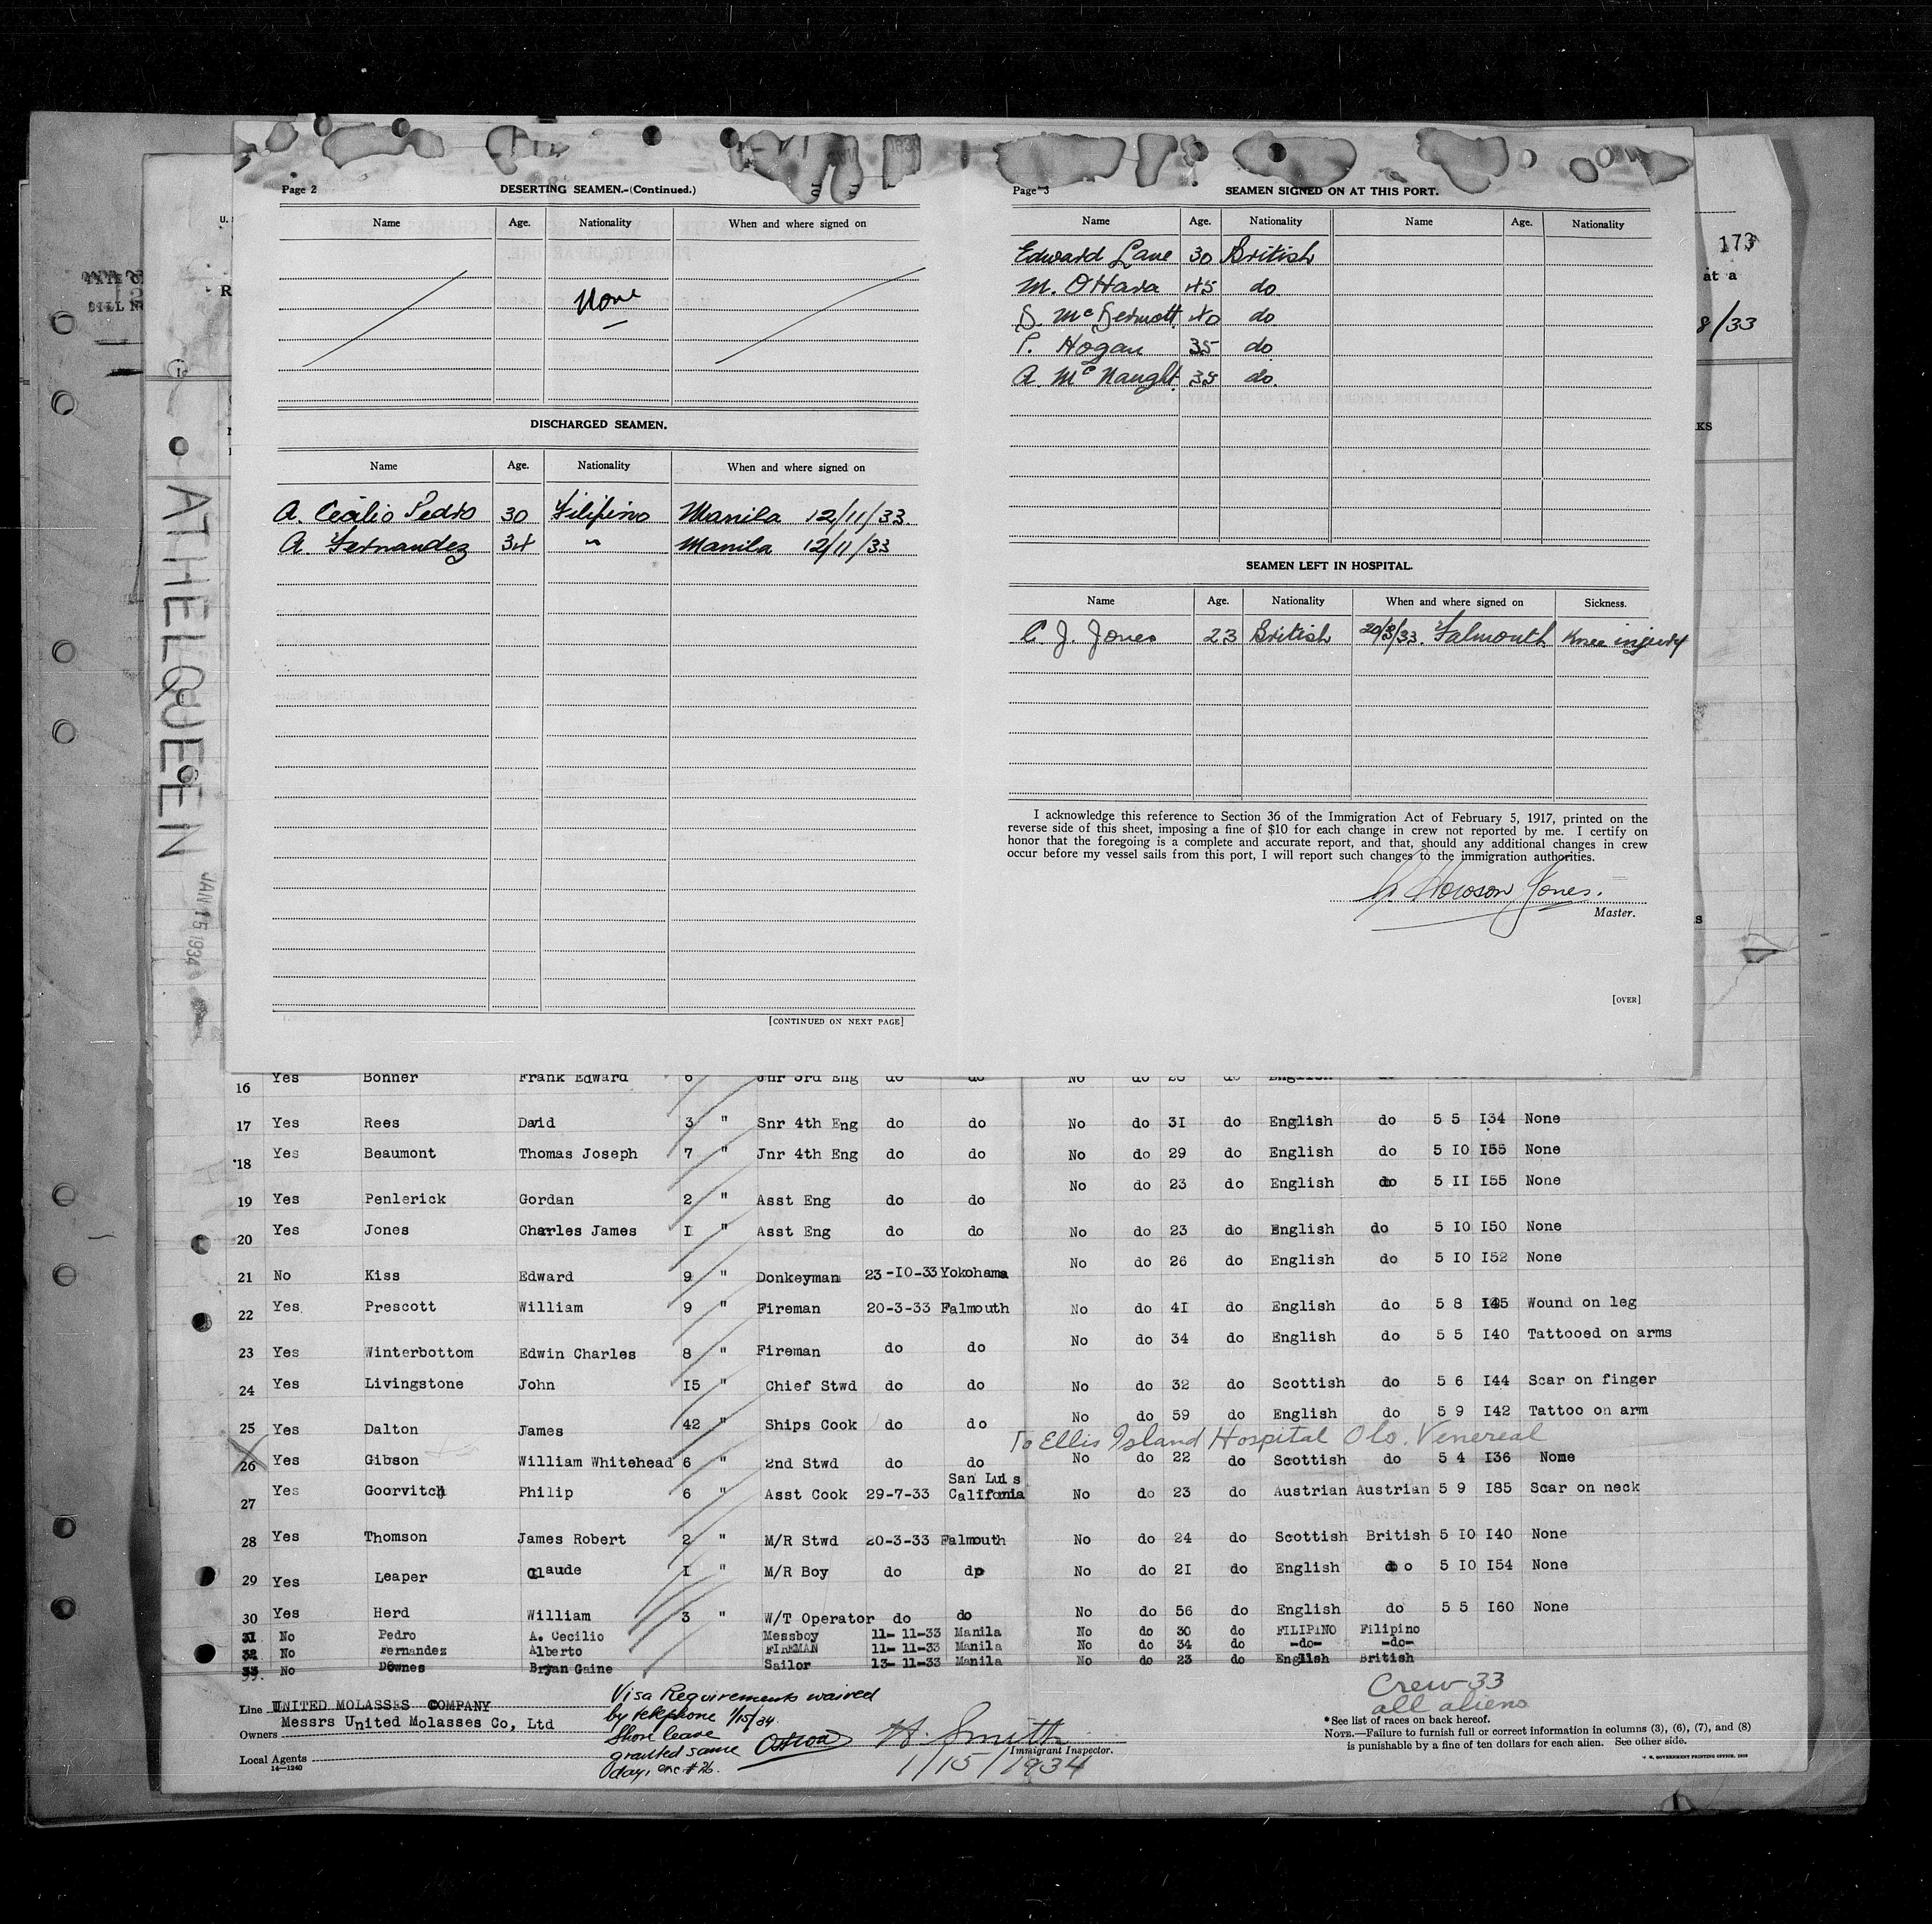 Page 2
DESERTING SEAMEN.-(Continued.)
Name Age. Nationality When and where signed on
None
DISCHARGED SEAMEN.
Name Age. Nationality When and where signed on
A. Cecilio Pedro 30 Filipino Manila 12/11/33
A. Fernandez 34 " Manila 12/11/33
[CONTINUED ON NEXT PAGE]
Page 3
SEAMEN SIGNED ON AT THIS PORT.
Name Age. Nationality Name Age. Nationality
Edward Lane 30 British
M. O'Hara 45 do
S. McDermott 40 do
P. Hogan 35 do
A. McNaught 35 do.
SEAMEN LEFT IN HOSPITAL.
Name Age. Nationality When and where signed on Sickness.
C. J. Jones 23 British 20/3/33. Falmouth Knee injury
I acknowledge this reference to Section 36 of the Immigration Act of February 5, 1917, printed on the
reverse side of this sheet, imposing a fine of $10 for each change in crew not reported by me. I certify on
honor that the foregoing is a complete and accurate report, and that, should any additional changes in crew
occur before my vessel sails from this port, I will report such changes to the immigration authorities.
Howson Jones.
Master.
[OVER]
173
at a
8/33
KS
ATHELQUEEN
JAN 15 1934
16 Yes Bonner Frank Edward 6 " Jnr 3rd Eng do do No do do English
17 Yes Rees David 3 " Snr 4th Eng do do No do 3I do English do 5 5 I34 None
18 Yes Beaumont Thomas Joseph 7 " Jnr 4th Eng do do No do 29 do English do 5 IO I55 None
19 Yes Penlerick Gordan 2 " Asst Eng do do No do 23 do English do 5 II I55 None
20 Yes Jones Charles James I " Asst Eng do do No do 23 do English do 5 IO I50 None
21 No Kiss Edward 9 " Donkeyman 23-IO-33 Yokohama No do 26 do English do 5 IO I52 None
22 Yes. Prescott William 9 " Fireman 20-3-33 Falmouth No do 4I do English do 5 8 I45 Wound on leg
23 Yes Winterbottom Edwin Charles 8 " Fireman do do No do 34 do English do 5 5 I40 Tattooed on arms
24 Yes Livingstone John I5 " Chief Stwd do do No do 32 do Scottish do 5 6 I44 Scar on finger
25 Yes Dalton James 42 " Ships Cook do do No do 59 do English do 5 9 I42 Tattoo on arm
To Ellis Island Hospital Venereal
26 Yes Gibson William Whitehead 6 " 2nd Stwd do do No do 22 do Scottish do 5 4 I36 None
27 Yes Goorvitch Philip 6 " Asst Cook 29-7-33 San Luis Califonia No do 23 do Austrian Austrian 5 9 I85 Scar on neck
28 Yes Thomson James Robert 2 " M/R Stwd 20-3-33 Falmouth No do 24 do Scottish British 5 IO I40 None
29 Yes Leaper Claude I " M/R Boy do do No do 2I do English do 5 IO I54 None
30 Yes Herd William 3 " W/T Operator do do No do 56 do English do 5 5 I60 None
31 No Pedro A. Cecilio Messboy 11-11-33 Manila No do 30 do FILIPINO Filipino
32 No Fernandez Alberto FIREMAN 11-11-33 Manila No do 34 do -do- -do-
33. No Downes Bryan Gaine Sailor 13-11-33 Manila No do 23 do English British
Line UNITED MOLASSES COMPANY
Owners Messrs United Molasses Co, Ltd
Local Agents
14—1240
Visa Requirements waived
by telephone 1/15/34.
Shore leave
granted same
day, exc #26.
H. Smith
Immigrant Inspector.
1/15/1934
Crew-33
all aliens
*See list of races on back hereof.
NOTE.—Failure to furnish full or correct information in columns (3), (6), (7), and (8)
is punishable by a fine of ten dollars for each alien. See other side.